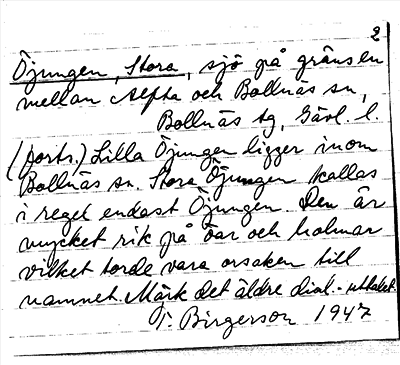 2
Öjungen, Stora, sjö på gränsen
mellan Alfta och Bollnäs sn,
Bollnäs tg, Gävl. l.
(forts.) Lilla Öjungen ligger inom
Bollnäs sn. Stora Öjungen kallas
i regel endast Öjungen. Den är
mycket rik på öar och holmar
vilket torde vara orsaken till
namnet. Märk det äldre dial.-uttalet.
T. Birgerson 1947